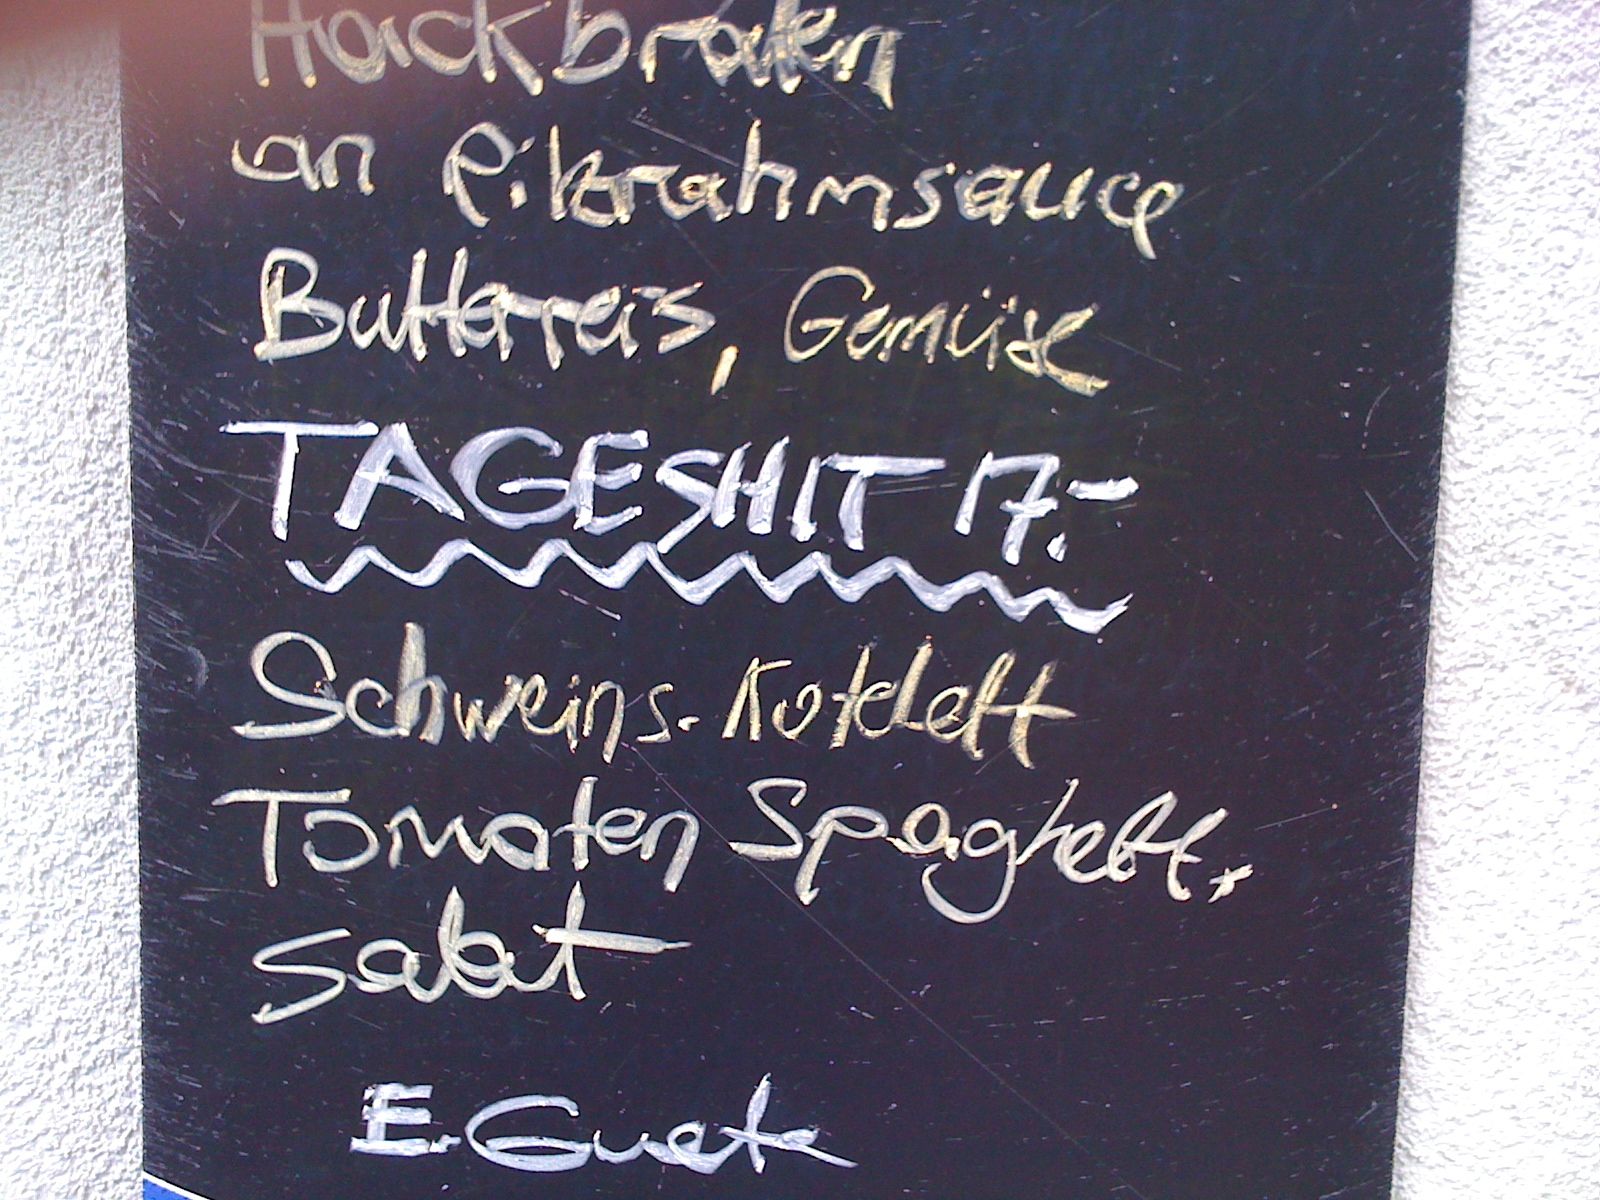 Hackbraten
an Pilzrahmsauce
Butterreis, Gemüse
TAGESHIT 17.-
Schweins-Kotelett
Tomaten Spaghetti,
Salat
E.Guete